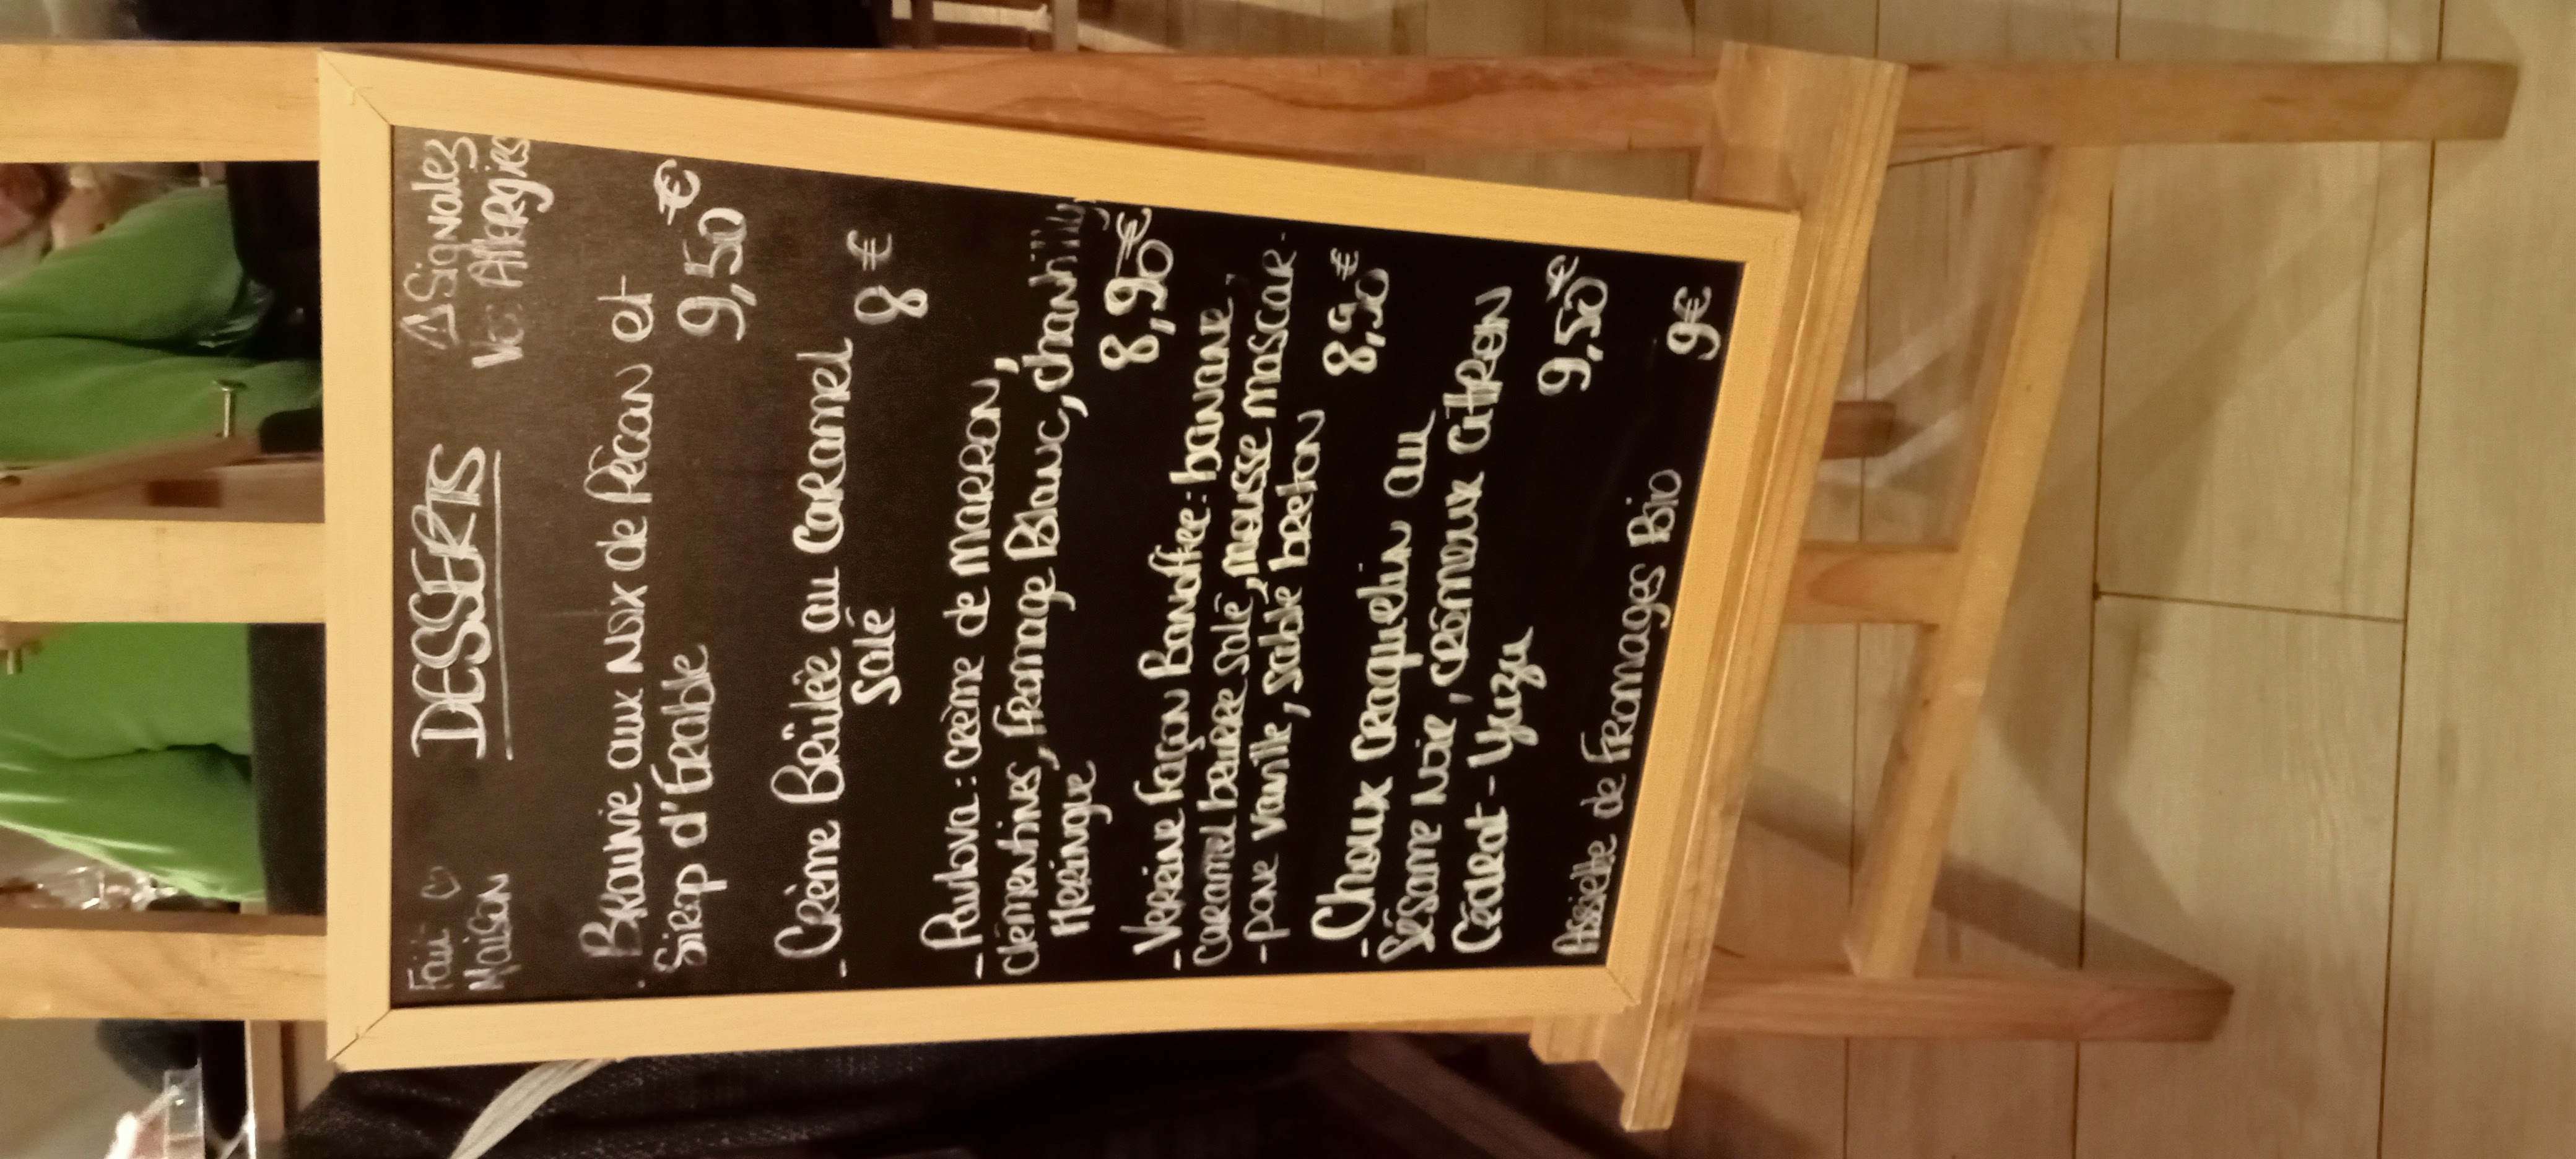 Fait ♡
Maison
DESSERTS
⚠ Signalez
Vos Allergies
- Brownie aux Noix de Pécan et
Sirop d'Érable 9,50€
- Crème Brûlée au Caramel
Salé 8€
- Pavlova : crème de Marron,
clémentines, Fromage Blanc, chantilly,
Meringue 8,90€
- Verrine Façon Banoffee : banane,
caramel beurre salé, Mousse mascar-
-pone vanille, sablé breton 8,90€
- Choux craquelin au
Sésame Noir, crémeux citron
Cédrat - Yuzu 9,50€
Assiette de Fromages Bio 9€